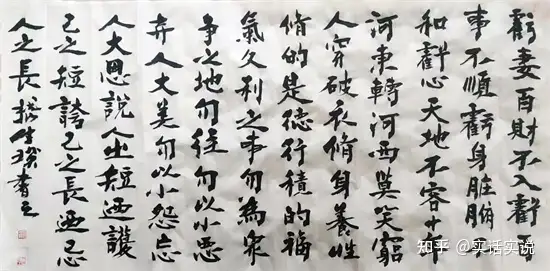 虧妻百財不入虧
事不順虧身脏腑
和虧心天地不容十年
河東轉河西莫笑窮
人穿破衣脩身養性
脩的是德行積的福
氣久利之事勿為眾
争之地勿往勿以小惡
弃人大美勿以小怨忘
人大恩說人之短迺護
己之短誇己之長迺忌
人之長 書之
知乎 @实话实说